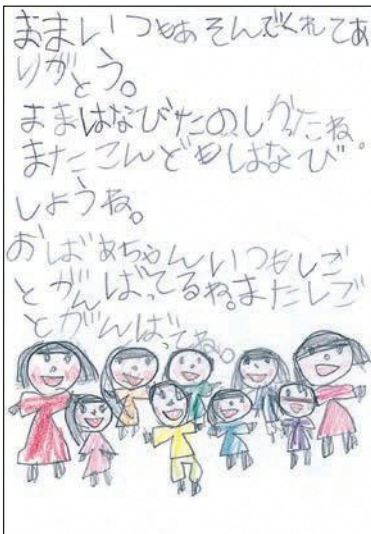 ままいつもあそんでくれてあ
りがとう。
ままはなびたのしかたね。
またこんどもはなび
しようね。
おばあちゃんいつもしご
とがんばってるね。またしご
とがんばってね。